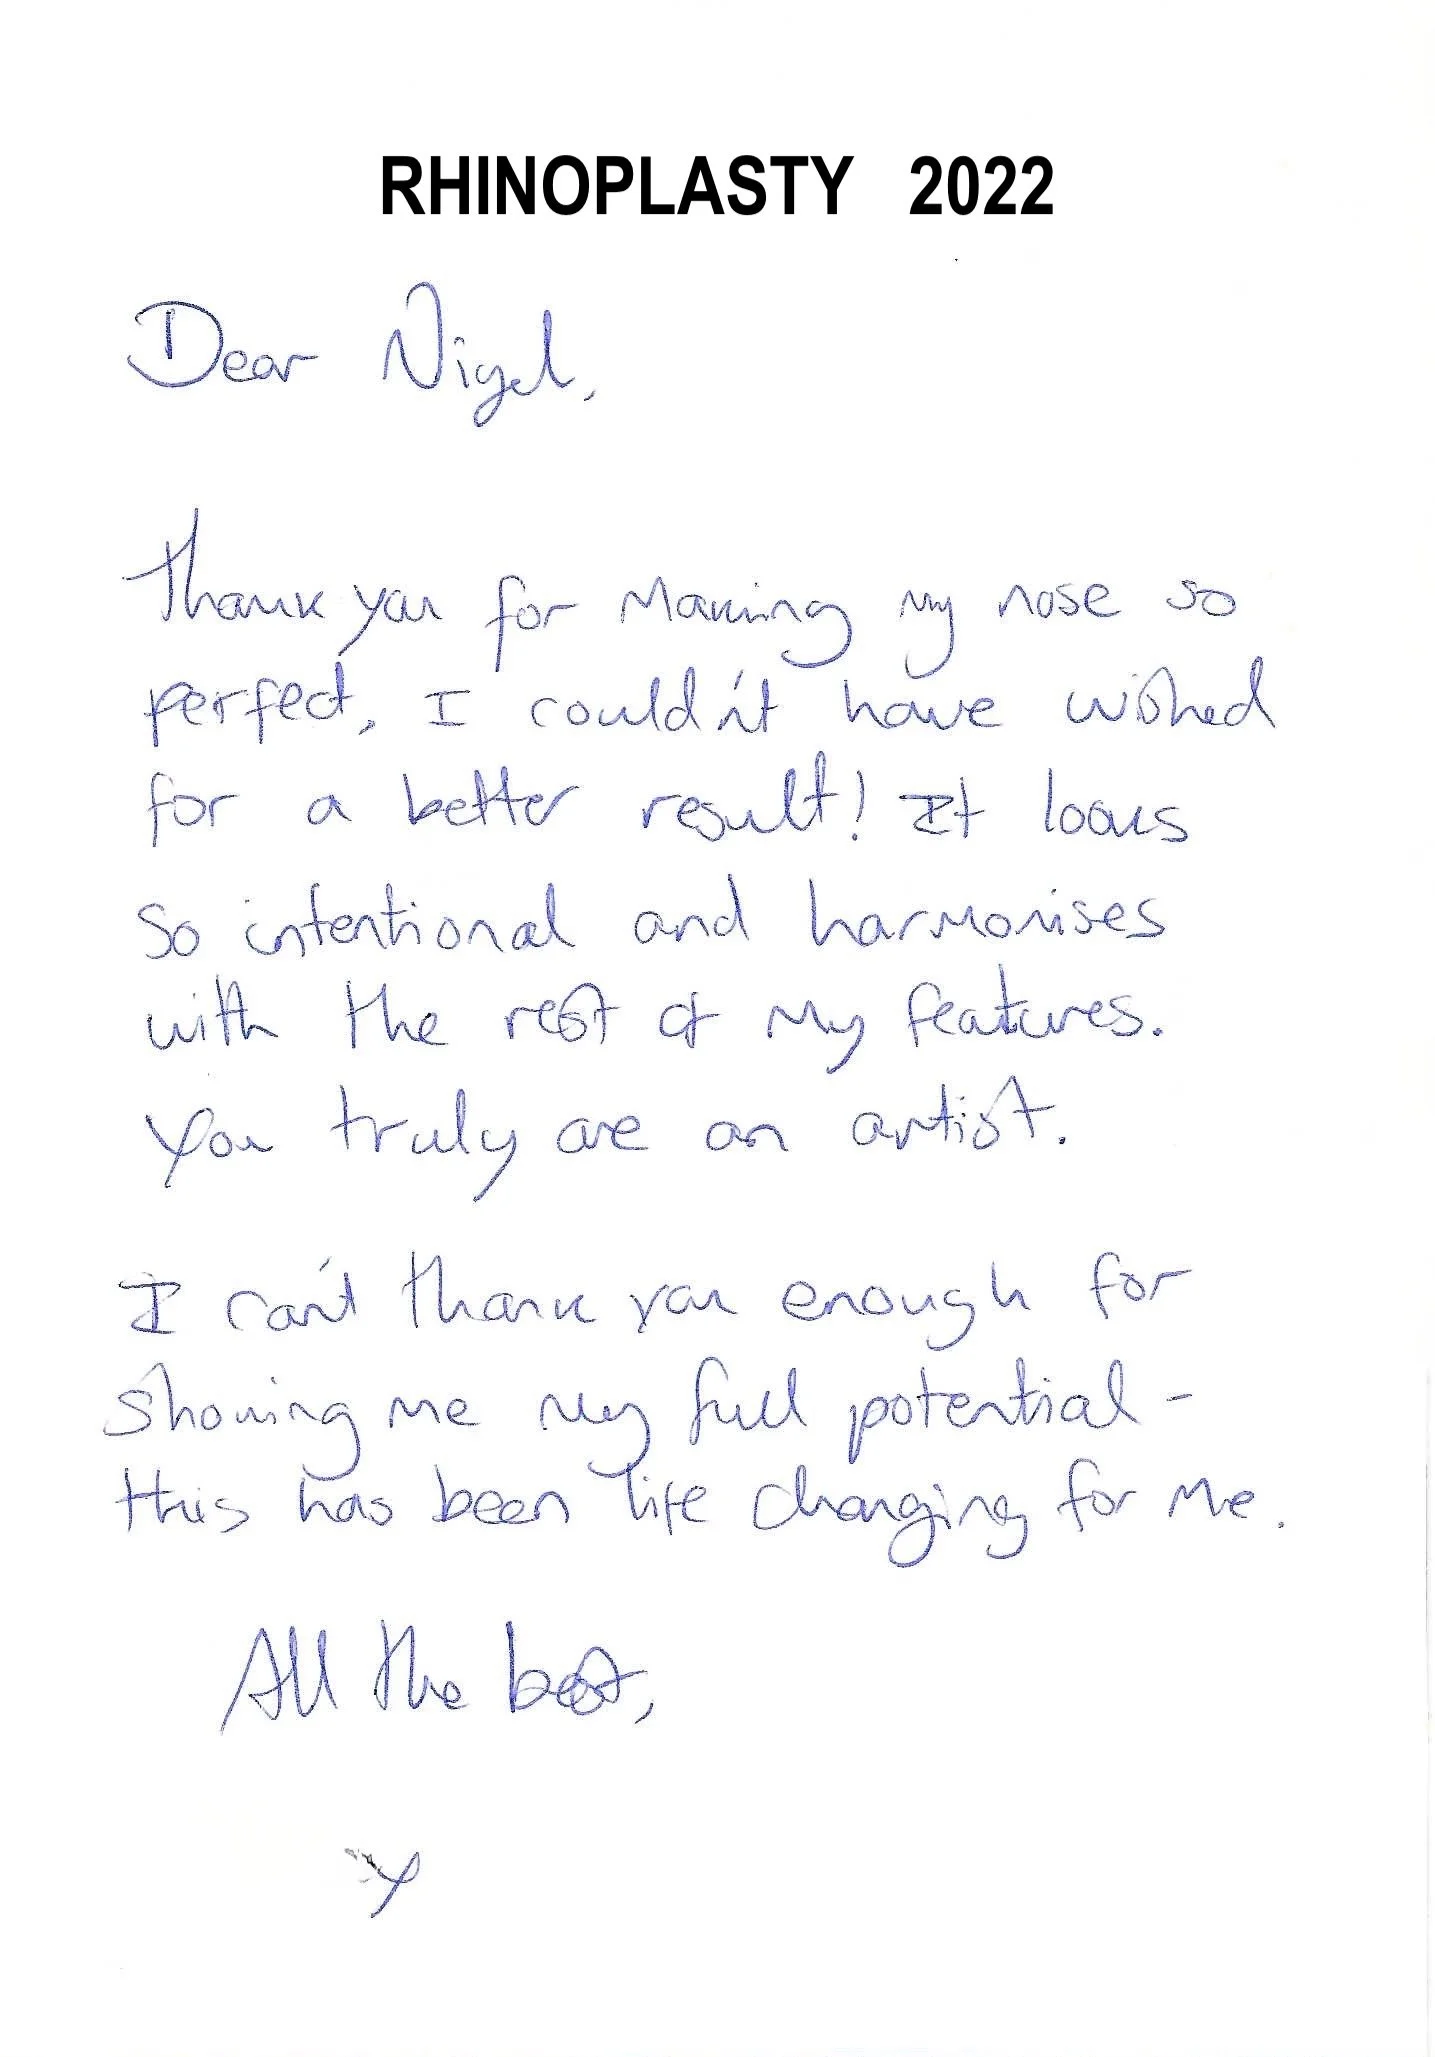 RHINOPLASTY 2022
Dear Nigel,
Thank you for making my nose so
perfect, I couldn't have wished
for a better result! It looks
so intentional and harmonises
with the rest of my features.
You truly are an artist.
I can't thank you enough for
showing me my full potential -
this has been life changing for me.
All the best,
x